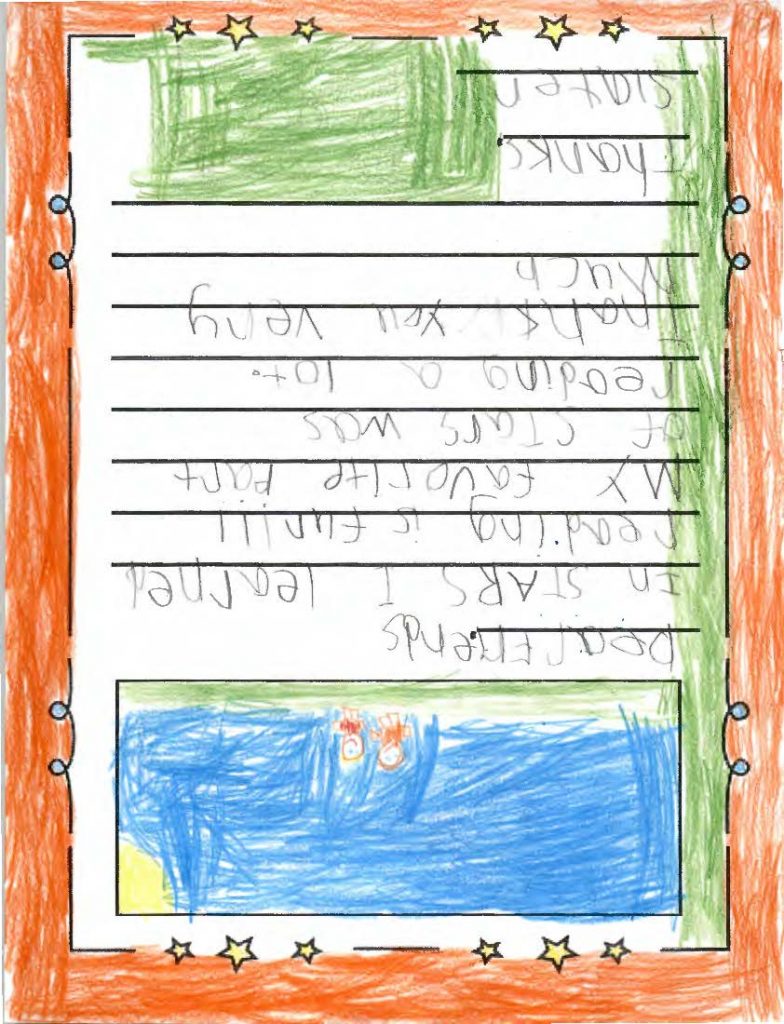 Dear Friends
In STARS I learned
reading is fun!!!
My favorite part
of stars was
reading a lot.
Thank you very
Much
Thanks
Slater